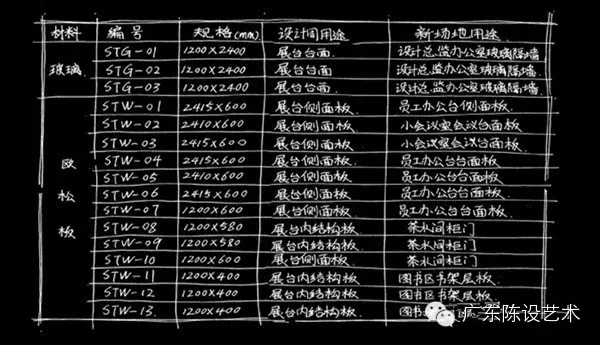 材料 编号 规格(mm) 设计周用途 新场地用途
玻璃 STG-01 1200×2400 展台台面 设计总监办公室玻璃隔墙
STG-02 1200×2400 展台台面 设计总监办公室玻璃隔墙
STG-03 1200×2400 展台台面 设计总监办公室玻璃隔墙
欧松板 STW-01 2415×600 展台侧面板 员工办公台侧面板
STW-02 2410×600 展台侧面板 小会议室会议台面板
STW-03 2415×600 展台侧面板 小会议室会议台面板
STW-04 2415×600 展台侧面板 员工办公台台面板
STW-05 2410×600 展台侧面板 员工办公台台面板
STW-06 2415×600 展台侧面板 员工办公台台面板
STW-07 1200×600 展台侧面板 员工办公台台面板
STW-08 1200×580 展台内结构板 茶水间柜门
STW-09 1200×580 展台内结构板 茶水间柜门
STW-10 1200×600 展台侧面板 茶水间柜门
STW-11 1200×400 展台内结构板 图书区书架层板
STW-12 1200×400 展台内结构板 图书区书架层板
STW-13 1200×400 展台内结构板 图书
广东陈设艺术